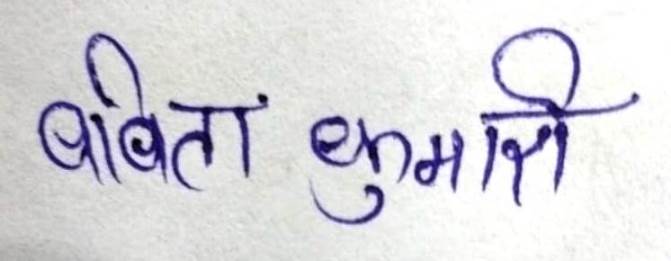 बबिता कुमारी